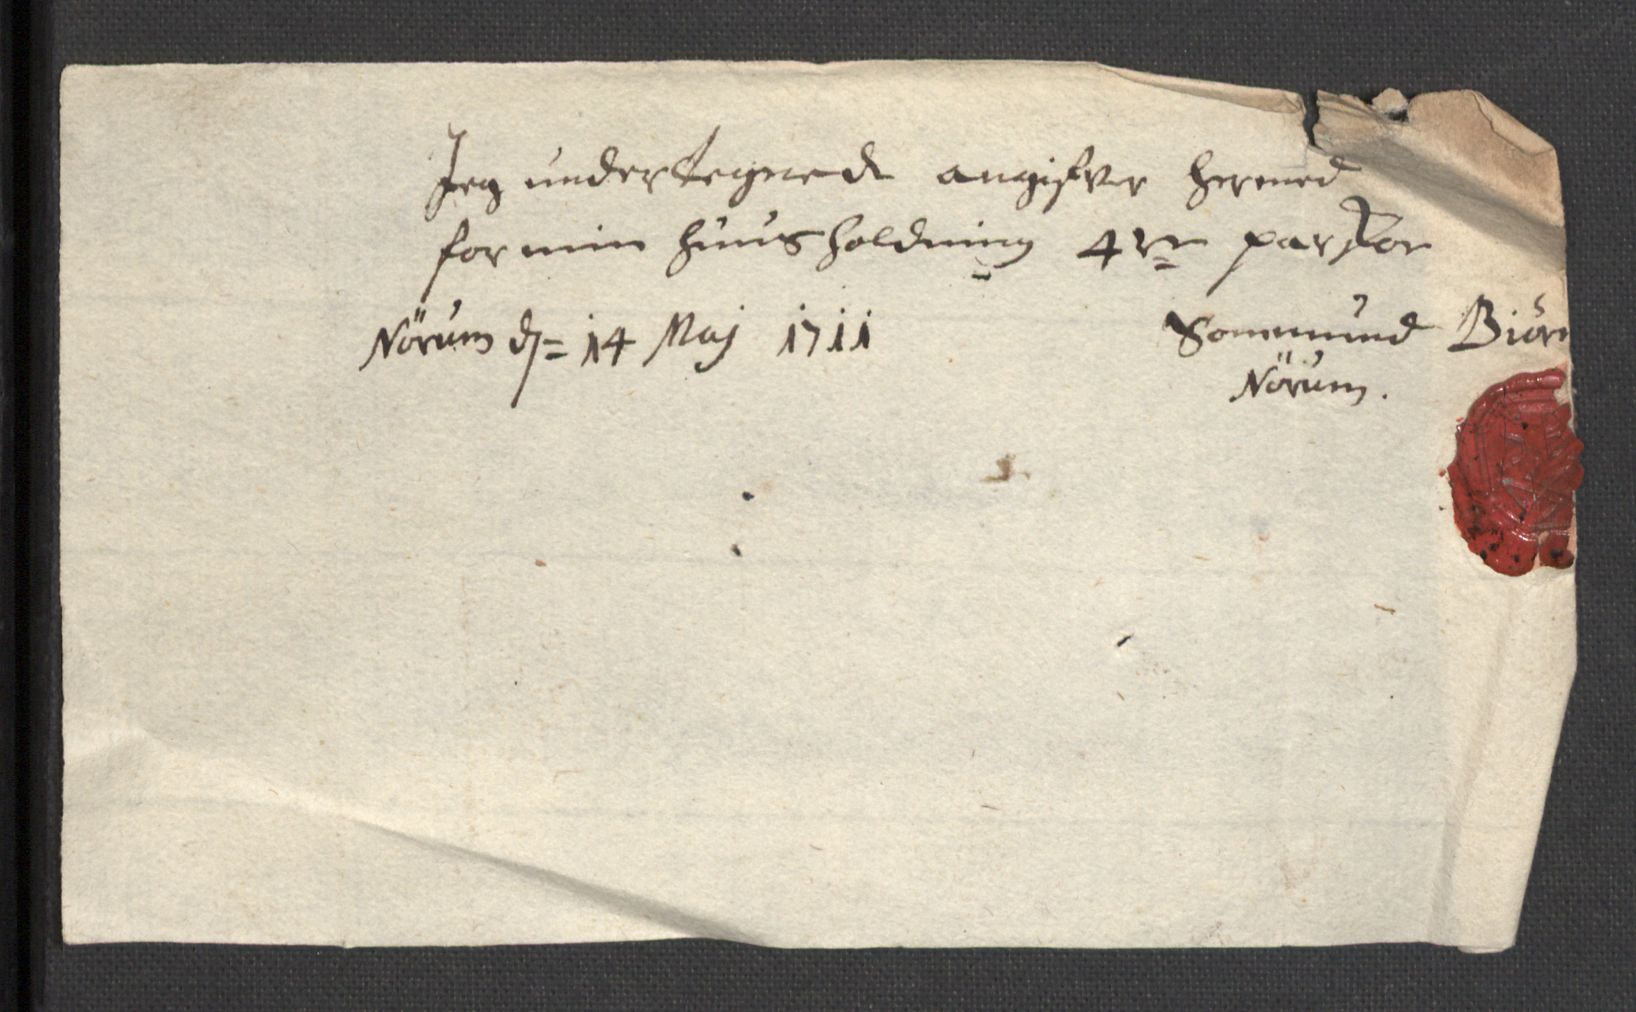 Jeg undertegnede angifver hermed
for min huusholdning 4re par skoe
Nörum d= 14 Maj 1711
Sommund Biörn
Nörum.